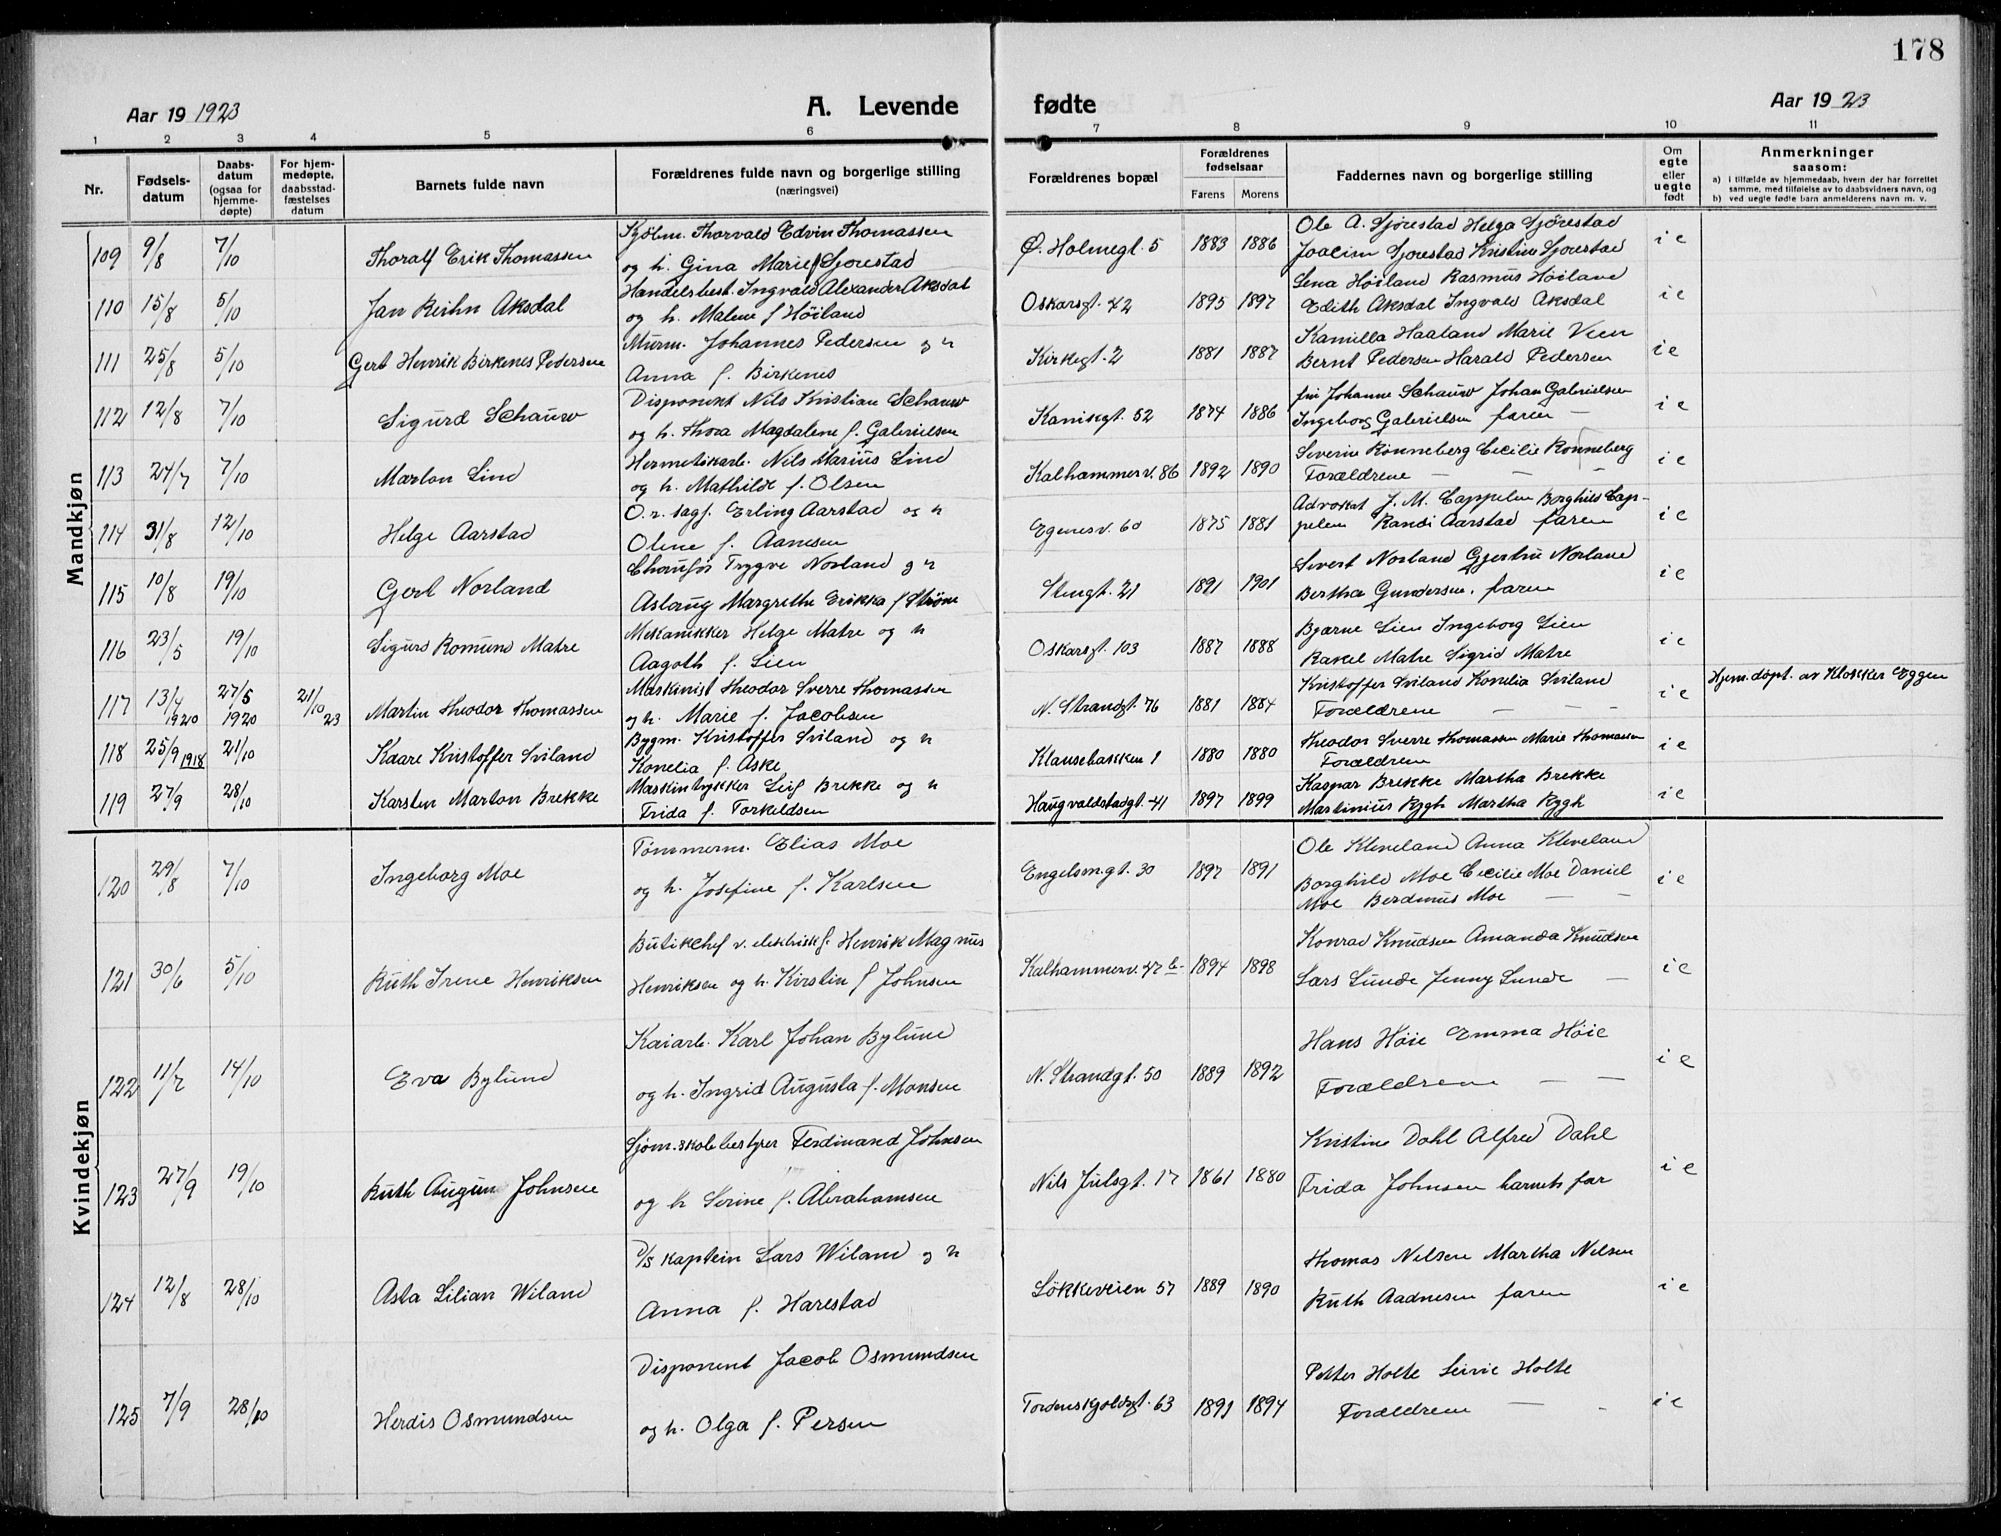 178
Aar 19 1923 A. Levende fødte Aar 19 23
1 2 3 4 5 6 7 8 9 10 11
Nr. Fødselsdatum Daabsdatum (ogsaa for hjemmedøpte) For hjemmedøpte, daabsstadfæstelses datum Barnets fulde navn Forældrenes fulde navn og borgerlige stilling (næringsvei) Forældrenes bopæl Forældrenes fødselsaar Farens Morens Faddernes navn og borgerlige stilling Om egte eller uegte født Anmerkninger saasom:
a) i tilfælde av hjemmedaab, hvem der har forrettet samme, med tilføielse av to daabsvidners navn, og
b) ved uegte fødte barn anmelderens navn m. v.
Mandkjøn
109 9/8 7/10 Thoralf Erik Thomassen Kjøbm. Thorvald Edvin Thomassen og h. Gina Marie f Sjørestad Ø. Holmegt. 5 1883 1886 Ole A. Sjørestad Helga Sjørestad Joakim Sjørestad Kristine Sjorestad i e
110 15/8 5/10 Jan Reihn Aksdal Handelsbest. Ingvald Alexander Aksdal og h. Malene f Höiland Oskarsgt. 42 1895 1897 Lena Höiland Rasmus Höiland Edith Aksdal Ingvald Aksdal i e
111 25/8 5/10 Gert Henrik Birkenes Pedersen Murm. Johannes Pedersen og h Anna f. Birkenes Kirkegt. 2 1881 1887 Kamilla Haaland Marie Veen Bernt Pedersen Harald Pedersen i e
112 12/8 7/10 Sigurd Schauw Disponent Nils Kristian Schauw og h. Thora Magdalene f. Gabrielsen Kanikgt. 52 1874 1886 frk Johanne Schauw Johan Gabrielsen Ingeborg Gabrielsen faren – i e
113 24/7 7/10 Marton Lind Hermetikarb. Nils Marius Lind og h. Mathilde f. Olsen Kalhammerv. 86 1892 1890 Severin Rönneberg Cecilie Ronneberg Forældrene – – – i e
114 31/8 12/10 Helge Aarstad O.r. sagf. Erling Aarstad og h Olene f. Aanesen Egenesv. 60 1875 1881 Advokat J. M. Cappelen Borghild Cappelen Randi Aarstad faren i e
115 10/8 19/10 Gert Norland Chaufør Trygve Norland og h Aslaug Margrethe Erikka f Ström Stengt. 21 1891 1901 Sivert Norland Gjertru Norland Bertha Gundersen. faren i e
116 23/5 19/10 Sigurd Romund Matre Mekanikker Helge Matre og h Aagoth f. Lien Oskarsgt. 103 1887 1888 Bjarne Lien Ingeborg Lien Rakel Matre Sigrid Matre i e
117 13/4 1920 27/5 1920 21/10 23 Martin Theodor Thomassen Maskinist Theodor Sverre Thomassen og h. Marie f. Jacobsen N. Strandgt. 76 1881 1884 Kristoffer Sviland Konelia Sviland Forældrene – – – i e Hjem.døpt. av Klokker Eggen
118 25/9 1918 21/10 Kaare Kristoffer Sviland Bygm. Kristoffer Sviland og h Konelia f. Aske Klausebakken 1 1880 1880 Theodor Sverre Thomassen Marie Thomassen Forældrene i e
119 27/9 28/10 Karsten Marton Brekke Maskintrykker Leif Brekke og h Frida f. Torkildsen Haugvaldstadgt. 41 1897 1899 Kaspar Brekke Martha Brekke Martinius Rygh Martha Rygh i e
Kvindekjøn
120 29/8 7/10 Ingeborg Moe Tömmerm. Elias Moe og h. Josefine f. Karlsen Engelsm.gt. 30 1897 1891 Ole Kleveland Anna Kleveland Borghild Moe Cecilie Moe Daniel Moe Berdinus Moe – – i e
121 30/6 5/10 Ruth Irene Henriksen Butikchef v. elektrisk f. Henrik Magnus Henriksen og h. Kirstin f Johnsen Kalhammerv. 42 b 1894 1898 Konrad Knudsen Amanda Knudsen Lars Lunde Jenny Lunde – i e
122 11/7 14/10 Eva Bylund Kaiarb. Karl Johan Bylund og h. Ingrid Augusta f. Monsen N. Strandgt. 50 1889 1892 Hans Höie Emma Höie Forældrene – – i e
123 27/9 19/10 Ruth Johnsen Sjøm.skolebestyrer Ferdinand Johnsen og h Serine f. Abrahamsen Nils Julsgt. 17 1861 1880 Kristine Dahl Alfred Dahl Frida Johnsen barnets far i e
124 12/8 28/10 Asta Lilian Wiland D/S kaptein Lars Wiland og h Anna f. Harestad Lökkeveien 57 1889 1890 Thomas Nilsen Martha Nilsen Ruth Aadnesen faren i e
125 7/9 28/10 Herdis Osmundsen Disponent Jacob Osmundsen og h. Olga f. Persen Tordenskjoldsgt. 63 1891 1894 Petter Holte Holte Forældrene – – i e